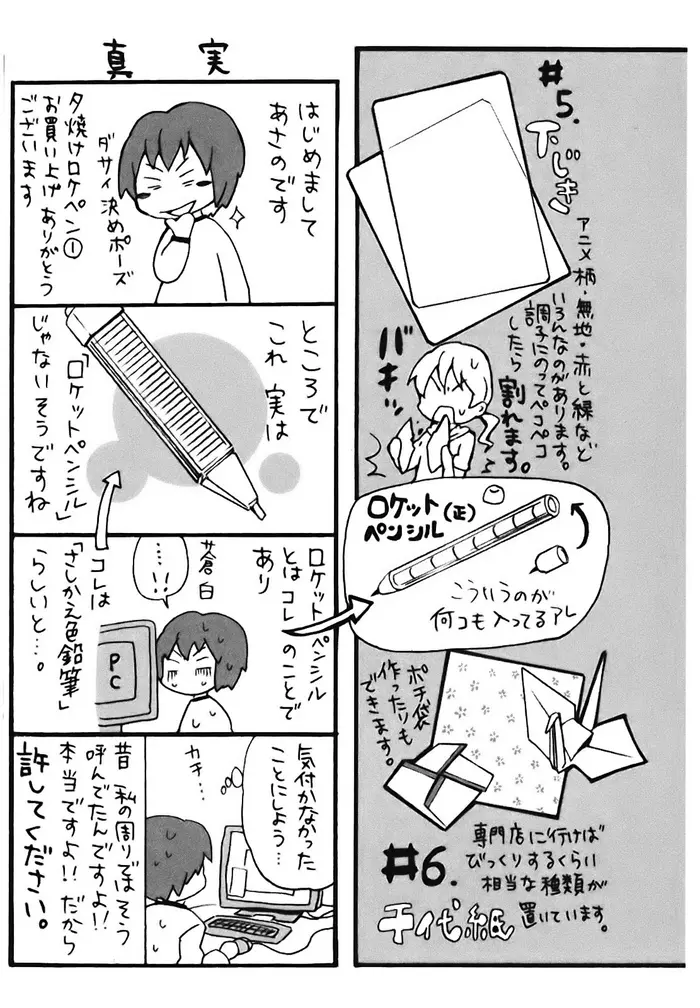 #5.
下じき
アニメ柄・無地・赤と緑など
いろんなのがあります。
調子にのってペコペコ
したら割れます。
バキッ
ロケット(正)
ペンシル
こういうのが
何コも入ってるアレ
ポチ袋
作ったりも
できます。
#6.
千代紙
専門店に行けば
びっくりするくらい
相当な種類が
置いています。
真実
はじめまして
あさのです
ダサイ決めポーズ
夕焼けロケペン①
お買い上げありがとう
ございます
ところで
これ実は
「ロケットペンシル」
じゃないそうですね
ロケットペンシル
とはコレのことで
あり
蒼白
…!!
PC
コレは
「さしかえ色鉛筆」
らしいと…。
気付かなかった
ことにしよう…
カチ…
昔私の周りではそう
呼んでたんですよ!!
本当ですよ!!だから
許してください。